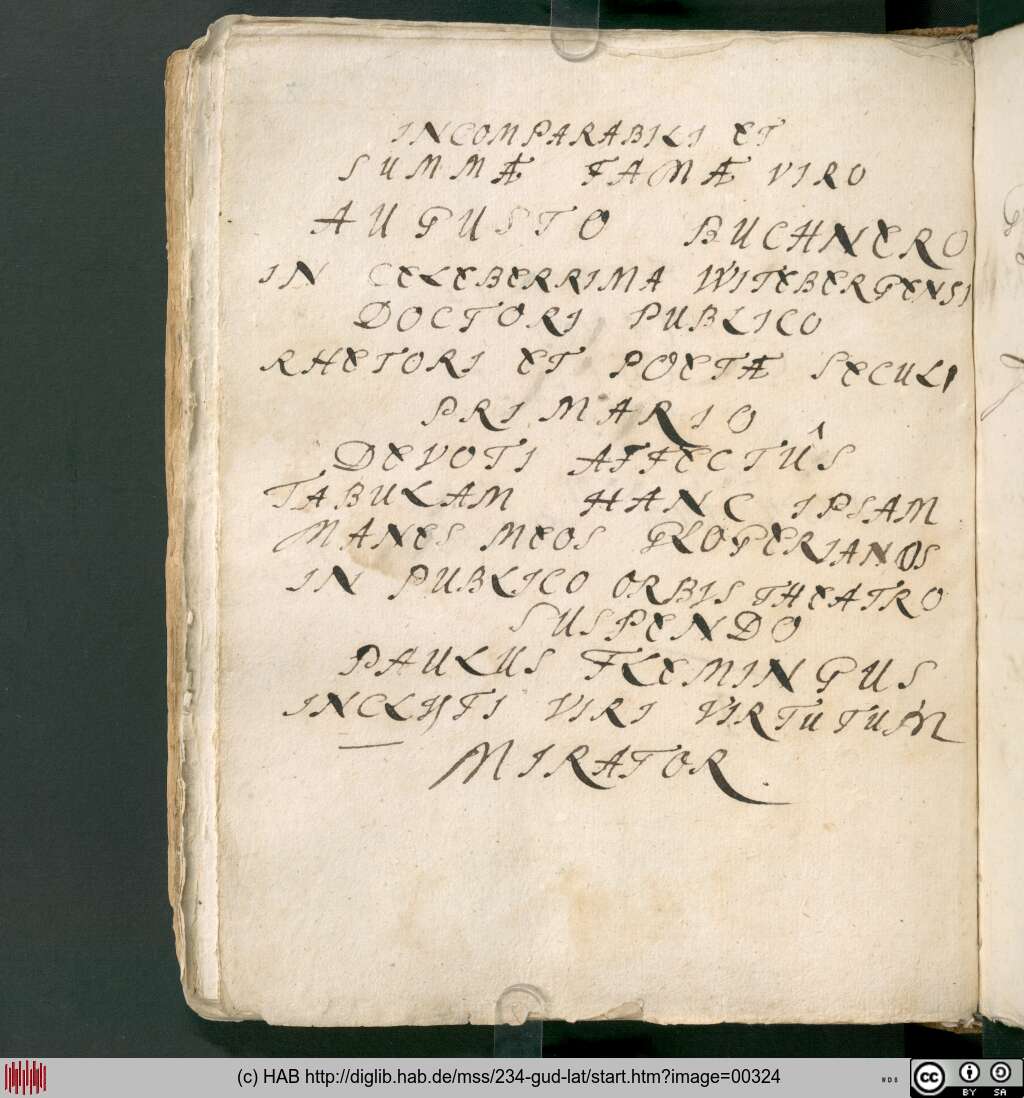 INCOMPARABILI ET
SUMMÆ FAMÆ VIRO
AUGUSTO BUCHNERO
IN CELEBERRIMA WITEBERGENSI
DOCTORI PUBLICO
RHETORI ET POETÆ SECULI
PRIMARIO
DEVOTI AFFECTÛS
TABULAM HANC IPSAM
MANES MEOS GLOGERIANOS
IN PUBLICO ORBIS THEATRO
SUSPENDO
PAULUS FLEMINGUS
INCLYTI VIRI VIRTUTUM
MIRATOR.
(c) HAB http://diglib.hab.de/mss/234-gud-lat/start.htm?image=00324
WDB
cc
BY SA